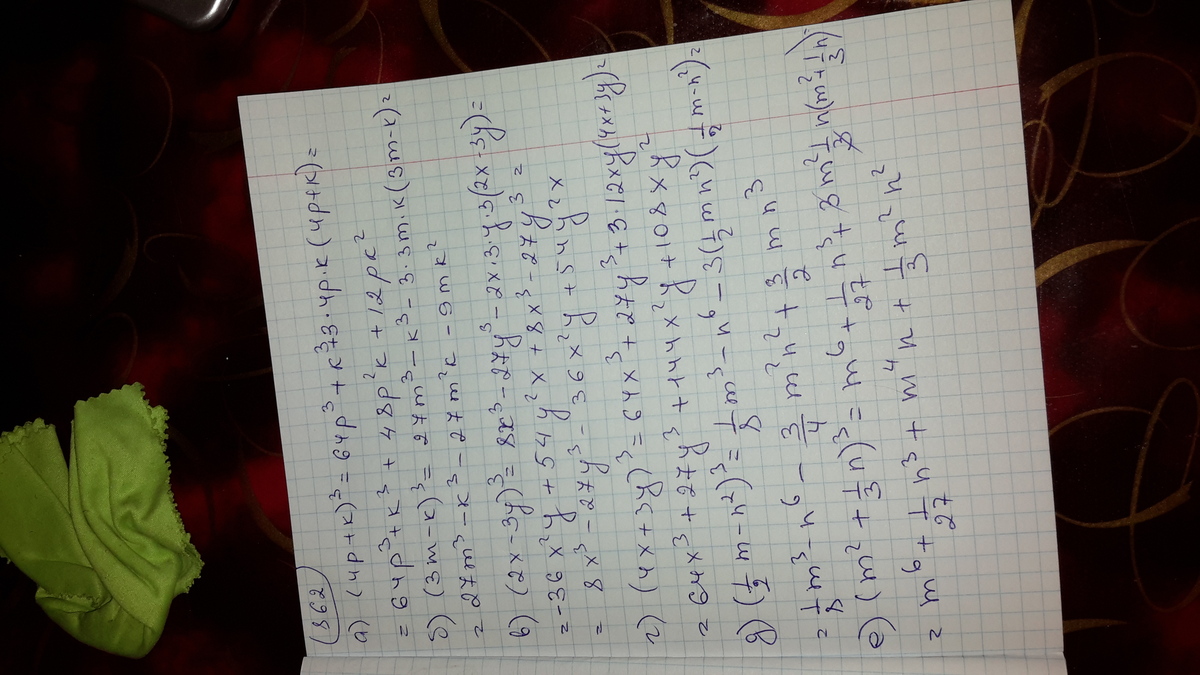 862
а) (4p+k)³ = 64p³ + k³ + 3·4p·k(4p+k) =
= 64p³ + k³ + 48p²k + 12pk²
б) (3m-k)³ = 27m³ - k³ - 3·3m·k(3m-k) =
= 27m³ - k³ - 27m²k - 9mk²
в) (2x-3y)³ = 8x³ - 27y³ - 2x·3·y·3(2x-3y) =
= -36x²y + 54y²x + 8x³ - 27y³ =
= 8x³ - 27y³ - 36x²y + 54y²x
г) (4x+3y)³ = 64x³ + 27y³ + 3·12xy(4x+3y) =
= 64x³ + 27y³ + 144x²y + 108xy²
д) (½m - n²)³ = ⅛m³ - n⁶ - 3(½mn²)(½m-n²) =
= ⅛m³ - n⁶ - ¾m²n² + 3/2 mn³
е) (m² + ⅓n)³ = m⁶ + 1/27 n³ + 3m² ⅓n(m² + ⅓n) =
= m⁶ + 1/27 n³ + m⁴n + ⅓m²n²